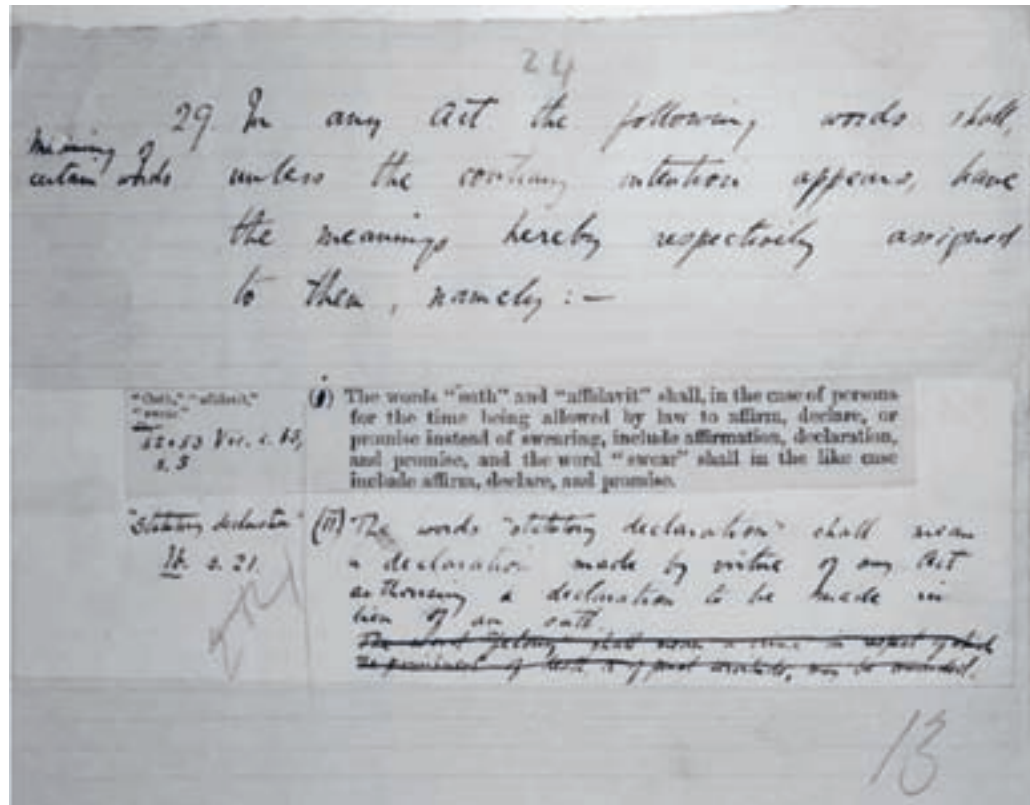 24
29. In any Act the following words shall,
Meaning of
certain words
unless the contrary intention appears, have
the meanings hereby respectively assigned
to them, namely:—
"Oath," "affidavit,"
"swear"
52 & 53 Vic. c. 63,
s. 3
(i) The words "oath" and "affidavit" shall, in the case of persons
for the time being allowed by law to affirm, declare, or
promise instead of swearing, include affirmation, declaration,
and promise, and the word "swear" shall in the like case
include affirm, declare, and promise.
"Statutory declaration"
Ib. s. 21.
(ii) The words "statutory declaration" shall mean
a declaration made by virtue of any Act
authorising a declaration to be made in
lieu of an oath.
The word "felony" shall mean a crime in respect of which
the punishment of death or of may be awarded.
13